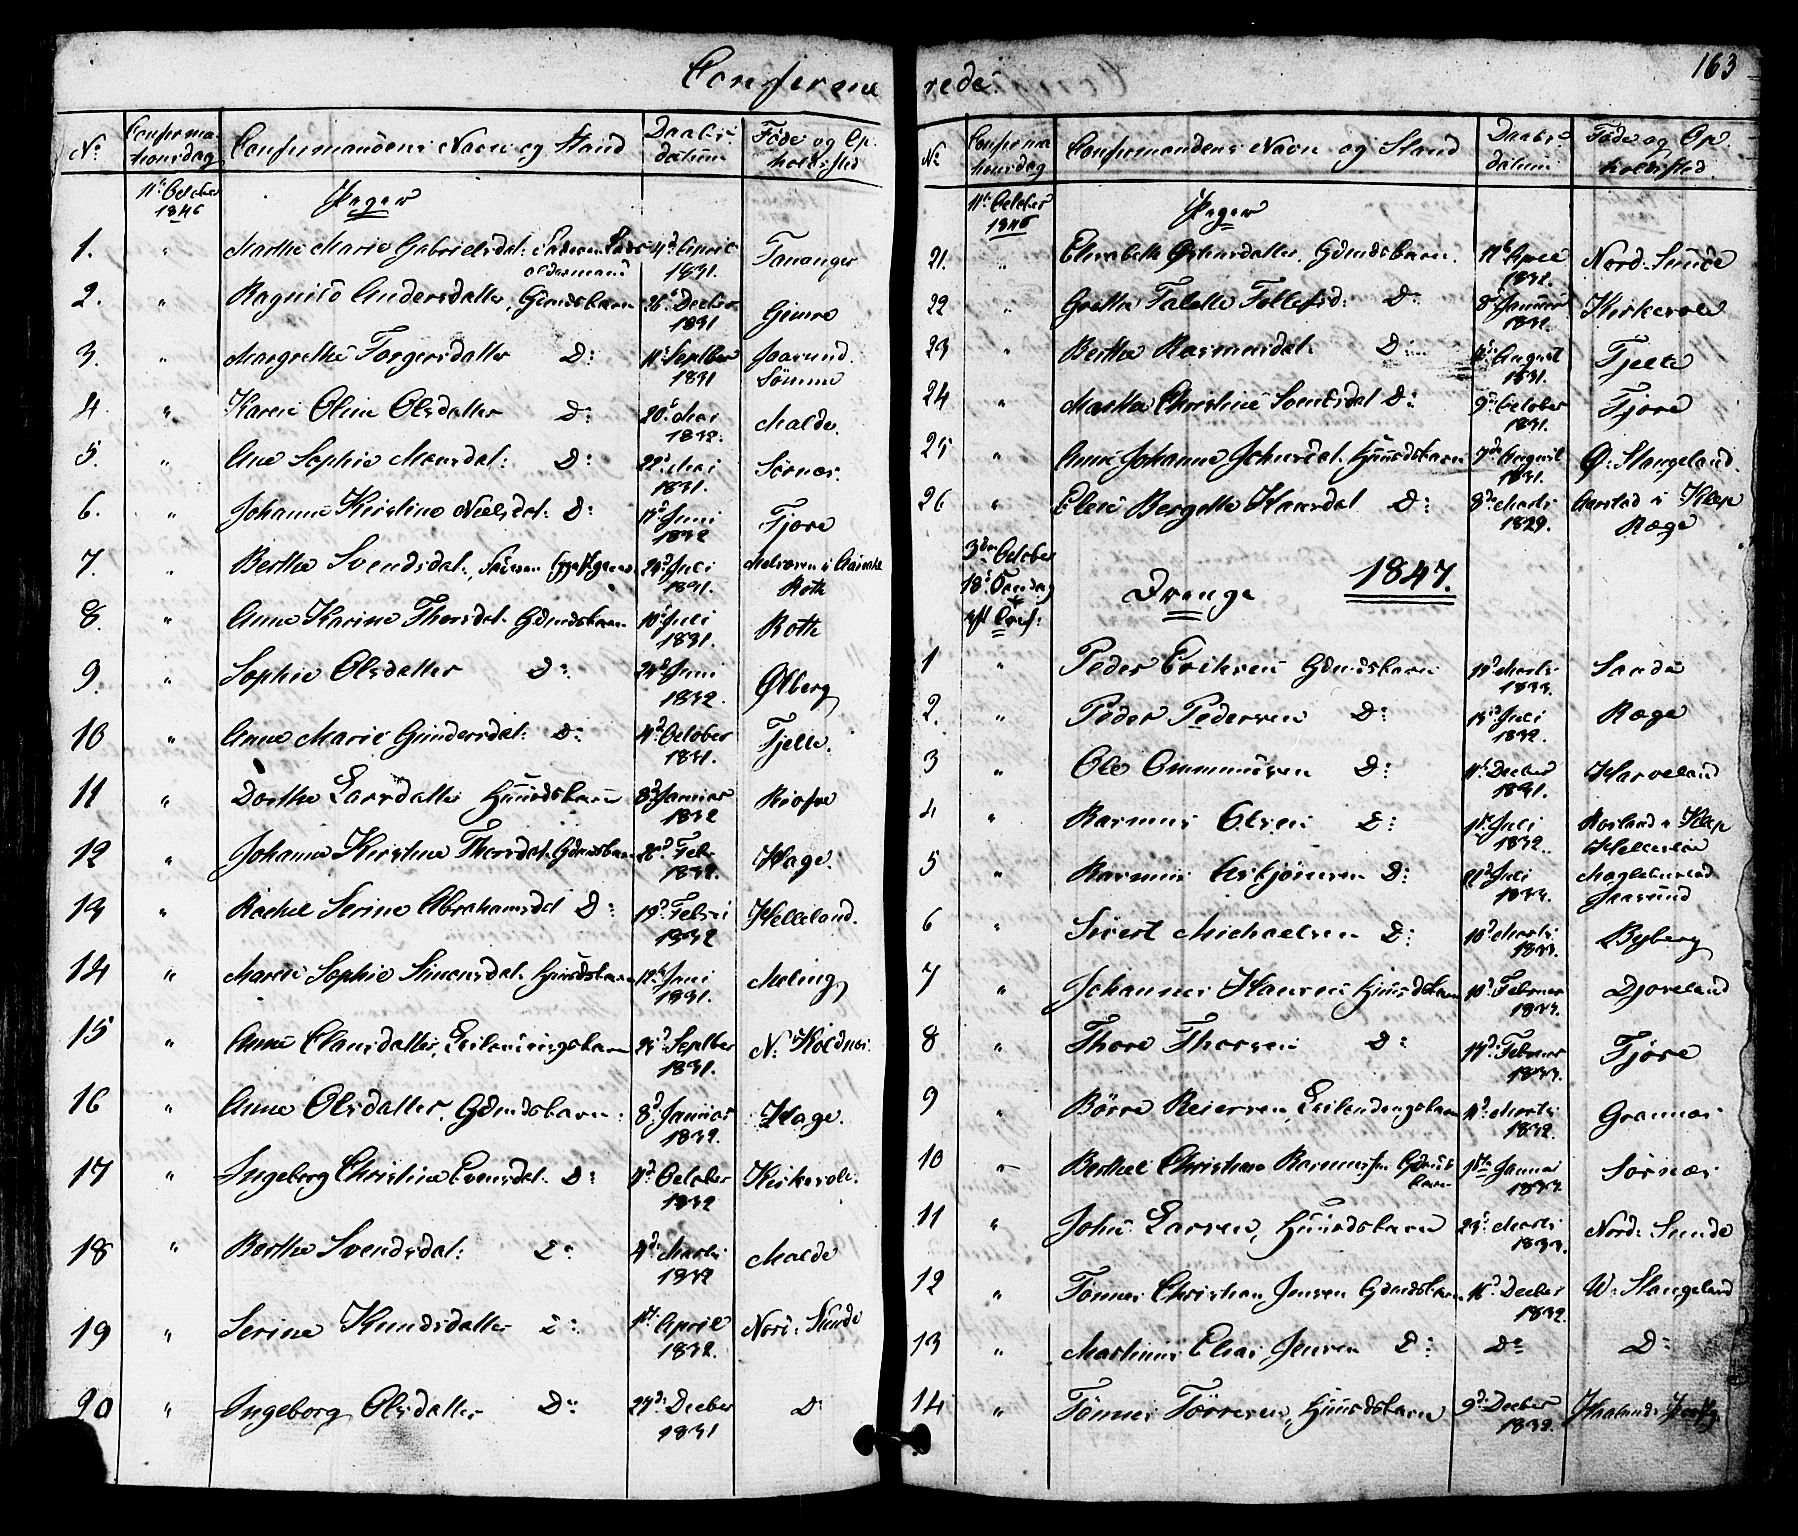 163
Confirme rede.
No Confirmationsdag Confirmandens Navn og Stand Daabsdatum Føde og Opholdssted
11te October 1846 Piger
1. " Marthe Marie Gabrielsdat: 4d April 1831. Tananger
2. " Ragnild Andersdatter, Gdmdsbarn 26d Decber 1831 Gimre
3. " Margrethe Torgersdatter D: 11t Septber 1831 Joasund. Sømme
4. " Karen Oline Olsdatter D: 20d Mai 1832. Malde.
5. " Ane Sophie Monsdat: D: 22d Mai 1831. Sørnæs.
6. " Johanne Kirstine Nielsdat: D: Juni 1832 Fjore
7. " Berthe Svendsdat: Juli 1831. Roth
8. " Anne Karine Thorsdat. Gdmdsbarn 10d Juli 1831. Roth
9. " Sophie Olsdatter D: 24d Juni 1832. Ølberg
10 " Anne Marie Gundersdat: D: 4d October 1831. Fjelle.
11 " Dorthe Larsdatter Huusdsbarn 8d Januar 1832
12 " Johanne Kirstine Thorsdat. Gdmdsbarn 26d Feb. 1832. Hage.
13 " Rachel Serine Abrahamsdat D: 19d Febr 1832 Helleland.
14 " Maren Sophie Simonsdat. Huusdsbarn 12te Juni 1831. Meling
15 " Anne Clausdatter, Leilendingsbarn 25d Septber 1831. N: Koldnæs.
16 " Anne Olsdatter, Gdmdsbarn: 8d Januar 1832. Hage.
17 " Ingeborg Christine Evensdat. D: October 1832 Kirkevole.
18 " Berthe Svendsdat: D: 4d Marts 1832 Malde
19 " Serine Knudsdatter D: 1st April 1832. Nord: Sunde
20 " Ingeborg Olsdatter D: 27d Decber 1831 D:
No Confirmationsdag Confirmandens Navn og Stand Daabsdatum Føde og Opholdssted.
11te October 1846 Piger
21. " Elisabeth Gdmdsbarn. April 1832. Nord: Sunde
22 " Grethe Talette Tollefsd: D: 8d Januar 1832. Kirkevole
23 " Berthe Rasmusdat: D: August 1831. Fjelle
24 " Marthe Christine Svendsdat D: 9d October 1831. Fjore
25 " Anne Johanne Johnsdat. Huusdsbarn 7d August 1831. Ø: Stangeland.
26 " Elen Bergette Hansdat D: 8d Marts 1829. Aarstad i Klep Ræge
3die October 18d Søndag eft. Tref: Drenge 1847.
1 " Peder Eriksen Gdmdsbarn Marts 1833. Sande
2. " Peder Pedersen D: 15d Juli 1832. Ræge
3 " Ole Ommundsen D: 11te Decber 1831. Harveland
4 " Rasmus Olsen D: 1st Juli 1832. i Klep
5 " Rasmus Asbjørnsen D: 21d Juli 1833. Joasund
6 " Sivert Michaelsen D: 10d Marts 1833. Byberg
7 " Johannes Hansen Huusdsbarn 10d Februar 1833. Djoreland
8 " Thore Thorsen D: 17d: Februar 1833. Fjore
9 " Børre Reiersen, Leilendingsbarn Marts 1832. Grannæs
10 " Berthel Christian Rasmussen Gdmdsbarn Januar 1833. Sørnæs
11 " John Larsen, Huusdsbarn 25d Marts 1833. Nord: Sunde
12 " Tønnes Christian Jensen Gdmdsbarn 16d Decber 1832. W: Stangeland
13 " Martinus Elias Jensen D: Do D:
14 " Tønnes Tørresen, Huusdsbarn 9d: Decber 1832.